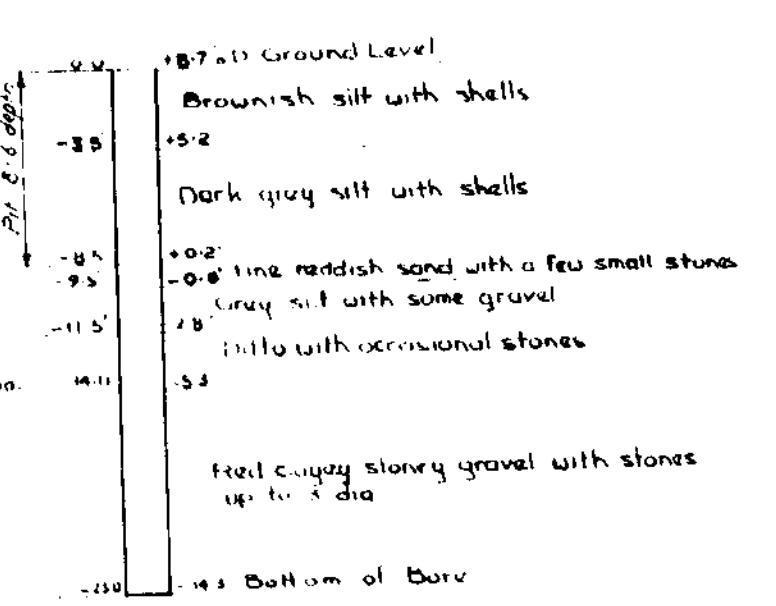 0.0 +8.7 OD Ground Level
Brownish silt with shells
-3.5 +5.2
Pit 8.6 depth
Dark grey silt with shells
-8.5 +0.2'
-9.5 -0.8' Fine reddish sand with a few small stones
Grey silt with some gravel
-11.5' 2.8'
Ditto with occasional stones
14.11 -5.3
Red clayey stoney gravel with stones
up to dia
-23.0 -14.3 Bottom of Bore